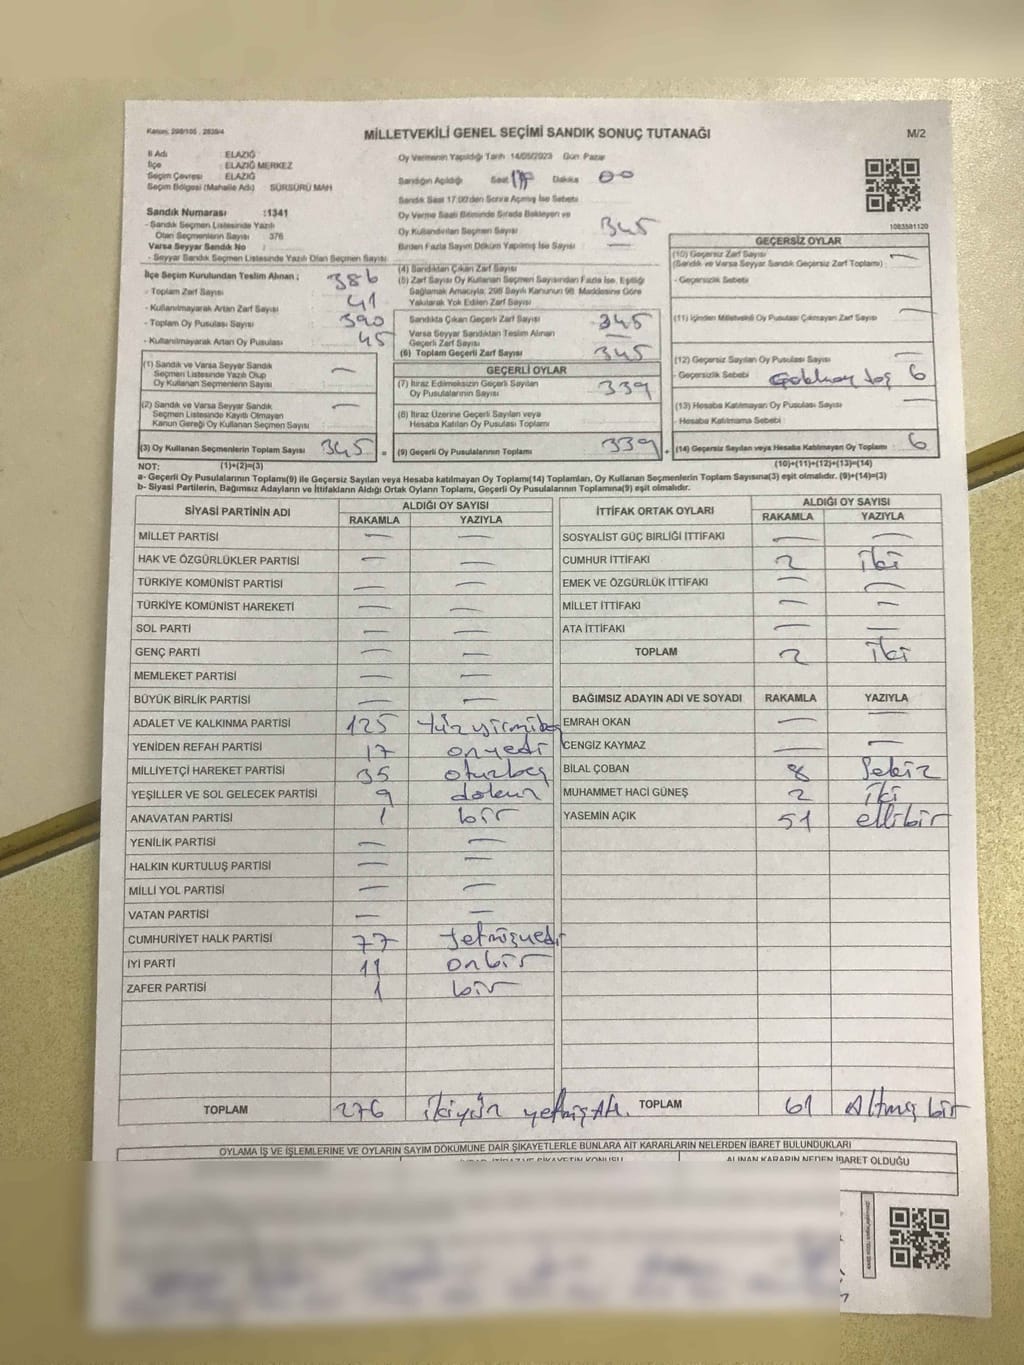 Kanun: 298/105 , 2839/4
MİLLETVEKİLİ GENEL SEÇİMİ SANDIK SONUÇ TUTANAĞI
M/2
İl Adı : ELAZIĞ
İlçe : ELAZIĞ MERKEZ
Seçim Çevresi : ELAZIĞ
Seçim Bölgesi (Mahalle Adı) SÜRSÜRÜ MAH
Sandık Numarası :1341
- Sandık Seçmen Listesinde Yazılı
Olan Seçmenlerin Sayısı 376
Varsa Seyyar Sandık No
- Seyyar Sandık Seçmen Listesinde Yazılı Olan Seçmen Sayısı
Oy Vermenin Yapıldığı Tarih 14/05/2023 Gün Pazar
Sandığın Açıldığı Saat 17 Dakika 00
Sandık Saat 17:00'den Sonra Açılmış İse Sebebi
Oy Verme Saati Bitiminde Sırada Bekleyen ve
Oy Kullandırılan Seçmen Sayısı 345
Birden Fazla Sayım Döküm Yapılmış İse Sayısı —
1083581120
İlçe Seçim Kurulundan Teslim Alınan ;
- Toplam Zarf Sayısı 386
- Kullanılmayarak Artan Zarf Sayısı 41
- Toplam Oy Pusulası Sayısı 390
- Kullanılmayarak Artan Oy Pusulası 45
(1) Sandık ve Varsa Seyyar Sandık
Seçmen Listesinde Yazılı Olup
Oy Kullanan Seçmenlerin Sayısı —
(2) Sandık ve Varsa Seyyar Sandık
Seçmen Listesinde Kayıtlı Olmayan
Kanun Gereği Oy Kullanan Seçmen Sayısı —
(3) Oy Kullanan Seçmenlerin Toplam Sayısı 345 =
(1)+(2)=(3)
(4) Sandıktan Çıkan Zarf Sayısı
(5) Zarf Sayısı Oy Kullanan Seçmen Sayısından Fazla İse, Eşitliği
Sağlamak Amacıyla, 298 Sayılı Kanunun 98. Maddesine Göre
Yakılarak Yok Edilen Zarf Sayısı
Sandıkta Çıkan Geçerli Zarf Sayısı 345
Varsa Seyyar Sandıktan Teslim Alınan
Geçerli Zarf Sayısı —
(6) Toplam Geçerli Zarf Sayısı 345
GEÇERLİ OYLAR
(7) İtiraz Edilmeksizin Geçerli Sayılan
Oy Pusulalarının Sayısı 339
(8) İtiraz Üzerine Geçerli Sayılan veya
Hesaba Katılan Oy Pusulası Toplamı
(9) Geçerli Oy Pusulalarının Toplamı 339 +
GEÇERSİZ OYLAR
(10) Geçersiz Zarf Sayısı
(Sandık ve Varsa Seyyar Sandık Geçersiz Zarf Toplamı) : —
- Geçersizlik Sebebi
(11) İçinden Milletvekili Oy Pusulası Çıkmayan Zarf Sayısı —
(12) Geçersiz Sayılan Oy Pusulası Sayısı —
- Geçersizlik Sebebi 6
(13) Hesaba Katılmayan Oy Pusulası Sayısı —
- Hesaba Katılmama Sebebi
(14) Geçersiz Sayılan veya Hesaba Katılmayan Oy Toplamı 6
(10)+(11)+(12)+(13)=(14)
NOT:
a- Geçerli Oy Pusulalarının Toplamı(9) ile Geçersiz Sayılan veya Hesaba katılmayan Oy Toplamı(14) Toplamları, Oy Kullanan Seçmenlerin Toplam Sayısına(3) eşit olmalıdır. (9)+(14)=(3)
b- Siyasi Partilerin, Bağımsız Adayların ve İttifakların Aldığı Ortak Oyların Toplamı, Geçerli Oy Pusulalarının Toplamına(9) eşit olmalıdır.
SİYASİ PARTİNİN ADI ALDIĞI OY SAYISI
RAKAMLA YAZIYLA
MİLLET PARTİSİ — —
HAK VE ÖZGÜRLÜKLER PARTİSİ — —
TÜRKİYE KOMÜNİST PARTİSİ — —
TÜRKİYE KOMÜNİST HAREKETİ — —
SOL PARTİ — —
GENÇ PARTİ — —
MEMLEKET PARTİSİ — —
BÜYÜK BİRLİK PARTİSİ — —
ADALET VE KALKINMA PARTİSİ 125 Yüzyirmibeş
YENİDEN REFAH PARTİSİ 17 onyedi
MİLLİYETÇİ HAREKET PARTİSİ 35 otuzbeş
YEŞİLLER VE SOL GELECEK PARTİSİ 9 dokuz
ANAVATAN PARTİSİ 1 bir
YENİLİK PARTİSİ — —
HALKIN KURTULUŞ PARTİSİ — —
MİLLİ YOL PARTİSİ — —
VATAN PARTİSİ — —
CUMHURİYET HALK PARTİSİ 77 Yetmişyedi
İYİ PARTİ 11 onbir
ZAFER PARTİSİ 1 bir
TOPLAM 276 ikiyüz yetmişaltı.
İTTİFAK ORTAK OYLARI ALDIĞI OY SAYISI
RAKAMLA YAZIYLA
SOSYALİST GÜÇ BİRLİĞİ İTTİFAKI — —
CUMHUR İTTİFAKI 2 iki
EMEK VE ÖZGÜRLÜK İTTİFAKI — —
MİLLET İTTİFAKI — —
ATA İTTİFAKI — —
TOPLAM 2 iki
BAĞIMSIZ ADAYIN ADI VE SOYADI RAKAMLA YAZIYLA
EMRAH OKAN — —
CENGİZ KAYMAZ — —
BİLAL ÇOBAN 8 Sekiz
MUHAMMET HACİ GÜNEŞ 2 iki
YASEMİN AÇIK 51 ellibir
TOPLAM 61 Altmış bir
OYLAMA İŞ VE İŞLEMLERİNE VE OYLARIN SAYIM DÖKÜMÜNE DAİR ŞİKAYETLERLE BUNLARA AİT KARARLARIN NELERDEN İBARET BULUNDUKLARI
ALINAN KARARIN NEDEN İBARET OLDUĞU